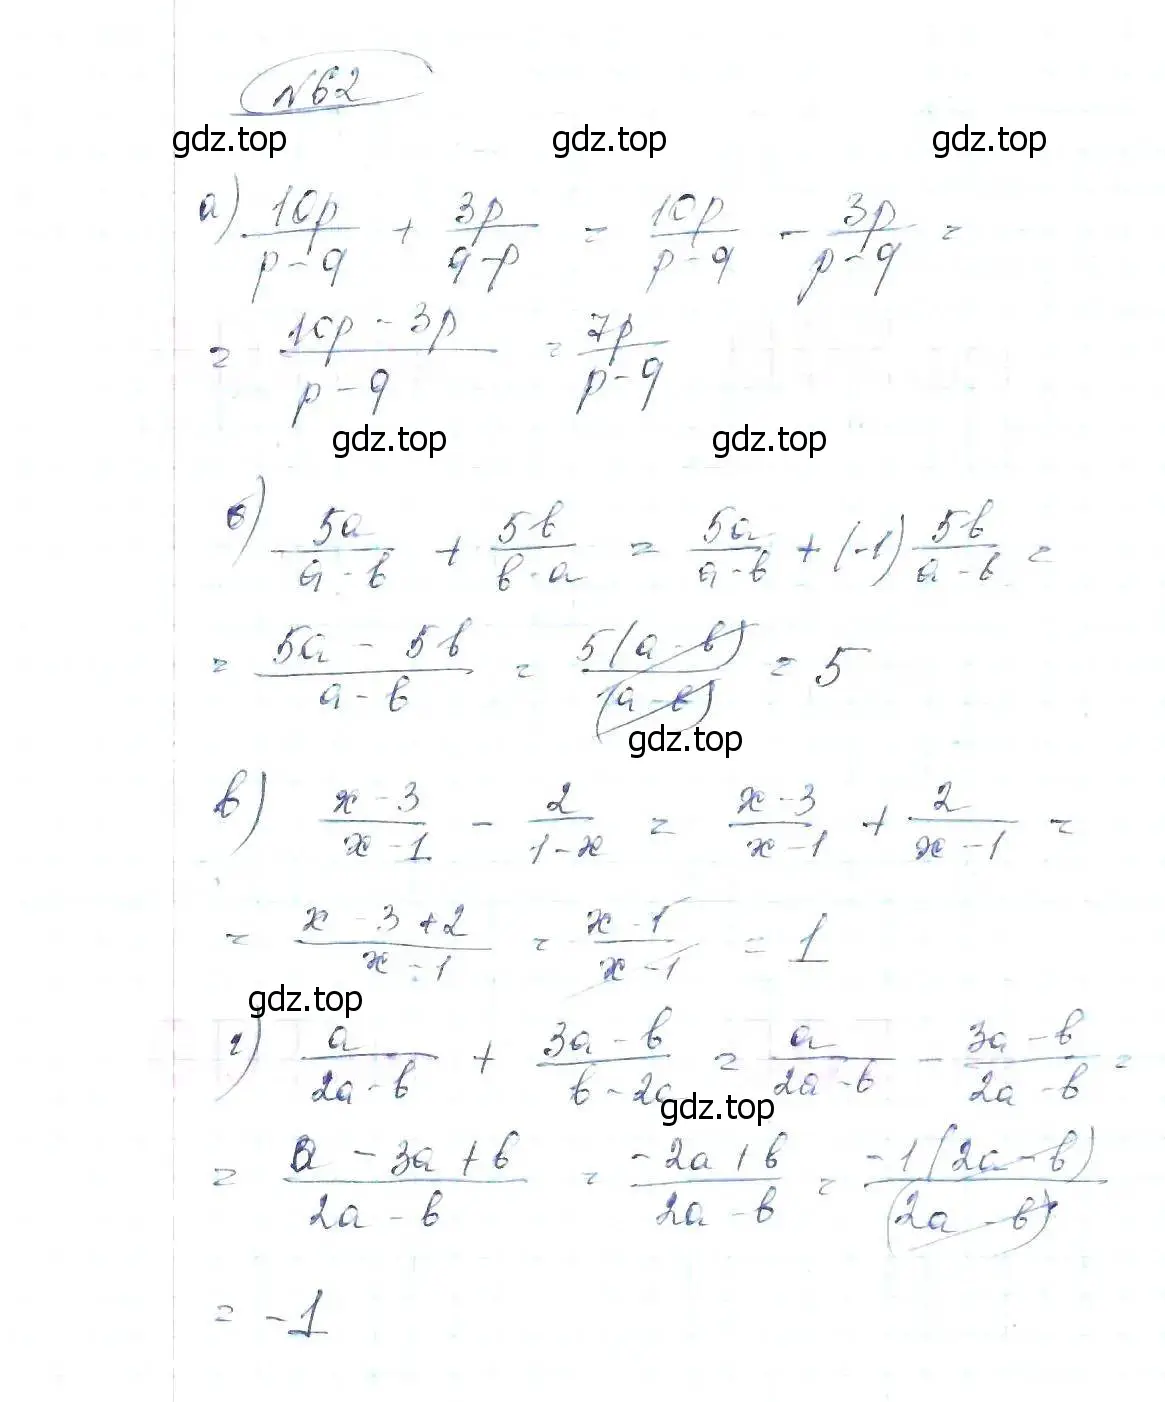 №62
gdz.top gdz.top gdz.top
а) 10p/(p-q) + 3p/(q-p) = 10p/(p-q) - 3p/(p-q) =
= (10p - 3p)/(p-q) = 7p/(p-q)
gdz.top gdz.top
б) 5a/(a-b) + 5b/(b-a) = 5a/(a-b) + (-1) 5b/(a-b) =
= (5a - 5b)/(a-b) = 5(a-b)/(a-b) = 5
gdz.top
в) (x-3)/(x-1) - 2/(1-x) = (x-3)/(x-1) + 2/(x-1) =
= (x-3+2)/(x-1) = (x-1)/(x-1) = 1
gdz.top
г) a/(2a-b) + (3a-b)/(b-2a) = a/(2a-b) - (3a-b)/(2a-b) =
gdz.top
= (a-3a+b)/(2a-b) = (-2a+b)/(2a-b) = -1(2a-b)/(2a-b)
= -1